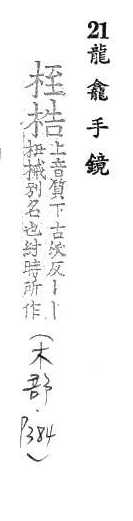 21龍龕手鏡
桎梏上音質下古沃反︱︱
杻械別名也紂時所作
(木部·P384)